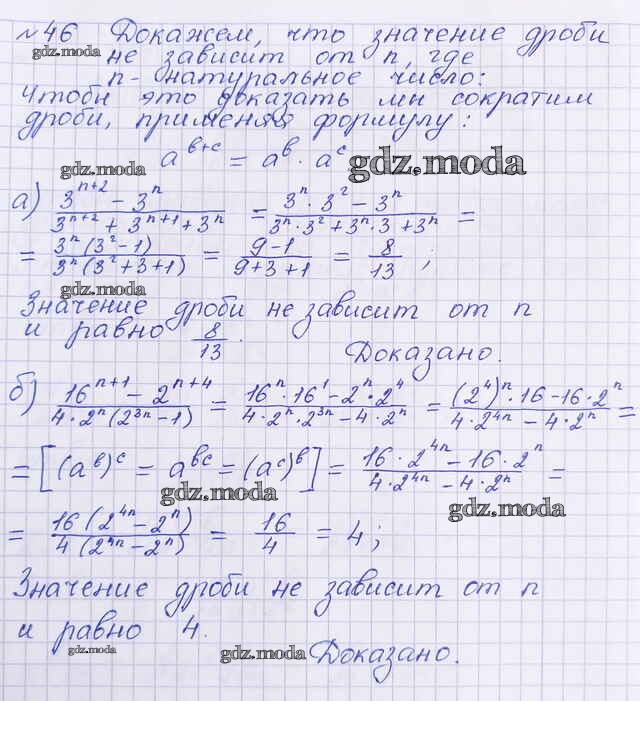 №46 Докажем, что значение дроби
gdz.moda
не зависит от n, где
n - натуральное число:
Чтобы это доказать мы сократим
дроби, применяя формулу:
a^(b+c) = a^b · a^c
gdz.moda
gdz.moda
а) (3^(n+2) - 3^n)/(3^(n+2) + 3^(n+1) + 3^n) = (3^n · 3^2 - 3^n)/(3^n · 3^2 + 3^n · 3 + 3^n) =
= (3^n (3^2 - 1))/(3^n (3^2 + 3 + 1)) = (9 - 1)/(9 + 3 + 1) = 8/13 ;
gdz.moda
Значение дроби не зависит от n
и равно 8/13.
Доказано.
б) (16^(n+1) - 2^(n+4))/(4 · 2^n (2^(3n) - 1)) = (16^n · 16^1 - 2^n · 2^4)/(4 · 2^n · 2^(3n) - 4 · 2^n) = ((2^4)^n · 16 - 16 · 2^n)/(4 · 2^(4n) - 4 · 2^n) =
= [(a^b)^c = a^(bc) = (a^c)^b] = (16 · 2^(4n) - 16 · 2^n)/(4 · 2^(4n) - 4 · 2^n) =
gdz.moda
gdz.moda
= (16 (2^(4n) - 2^n))/(4 (2^(4n) - 2^n)) = 16/4 = 4 ;
Значение дроби не зависит от n
и равно 4.
gdz.moda
gdz.moda
Доказано.